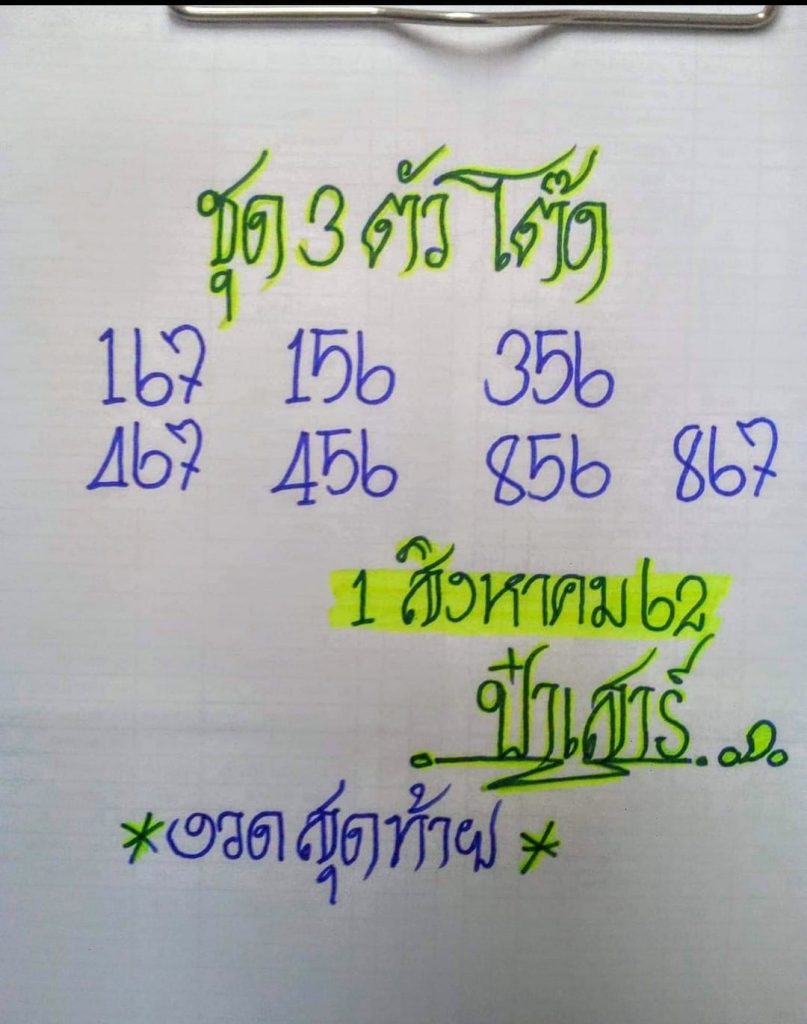 ชุด 3 ตัว โต๊ด
167 156 356
467 456 856 867
1 สิงหาคม 62
ป๋าเสาร์...
*งวดสุดท้าย*